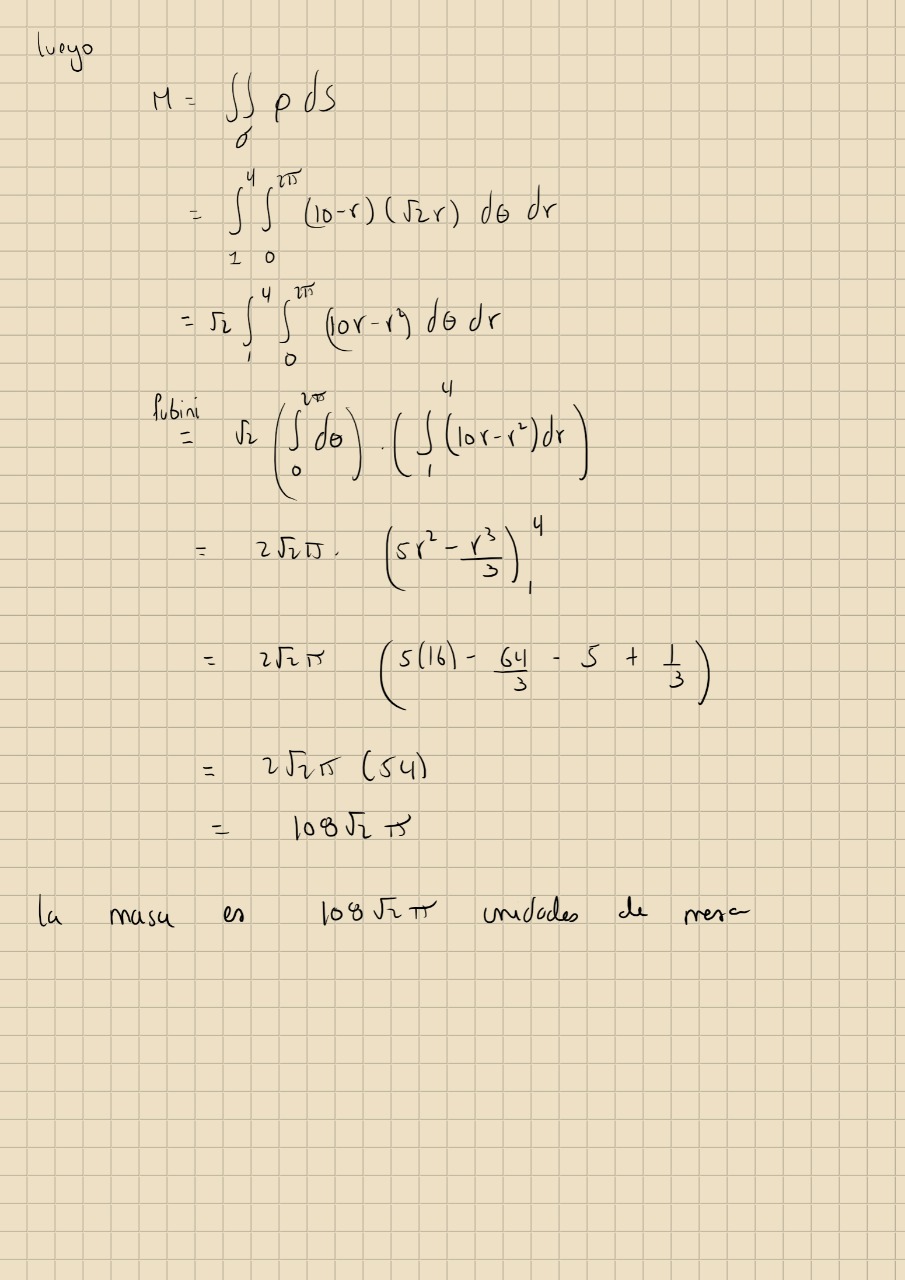 luego
M = ∬_σ ρ dS
= ∫_1^4 ∫_0^{2π} (10-r) (√2 r) dθ dr
= √2 ∫_1^4 ∫_0^{2π} (10r - r²) dθ dr
Fubini
= √2 (∫_0^{2π} dθ) · (∫_1^4 (10r - r²) dr)
= 2√2 π · (5r² - r³/3)_1^4
= 2√2 π (5(16) - 64/3 - 5 + 1/3)
= 2√2 π (54)
= 108√2 π
la masa es 108√2 π unidades de masa